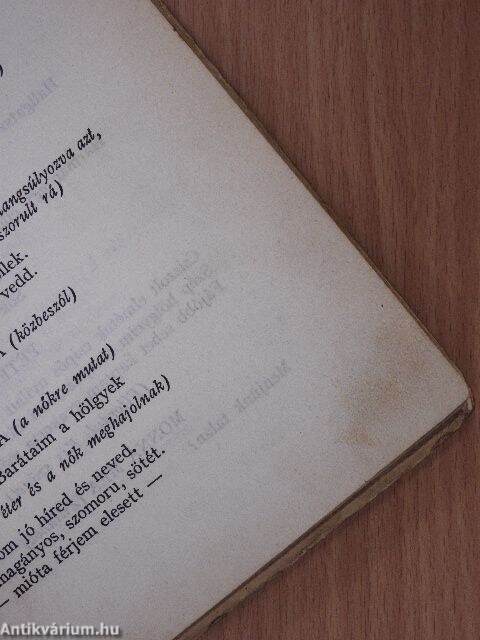 )
langsúlyozva azt,
szorult rá)
llek.
vedd.
A (közbeszól)
A (a nőkre mutat)
Barátaim a hölgyek
éter és a nők meghajolnak)
om jó híred és neved.
magányos, szomoru, sötét.
— mióta férjem elesett —
Antikvárium.hu